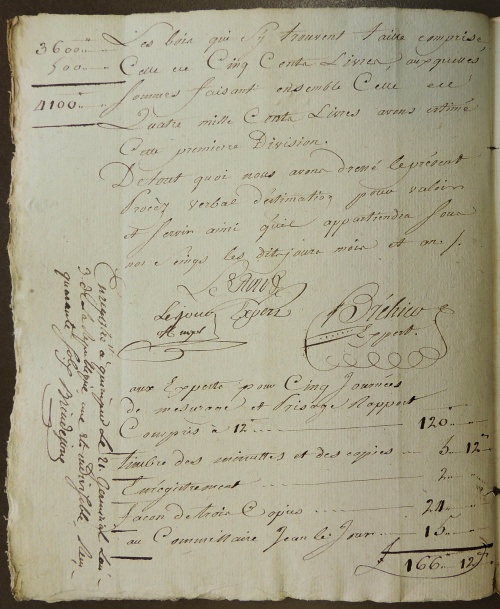 3600
500
4100
Les bois qui s'y trouvent taille comprise
Celle de Cinq Cents Livres, auxquelles
sommes faisant ensemble Celle de
Quatre mille Cents Livres avons estimé
Cette premiere Division.
De tout quoi nous avons dressé le présent
Procez verbal d'estimation pour valoir
et servir ainsi qu'il appartiendra sous
nos seings les dits jours mois et an /.
Le Jour
Expert
Bréhier
Expert.
Enregistré à quimper Le 21
quarante sols
aux Experts pour Cinq Journées
de mesurage et Prisage Rapport
Compris à 12 120
Timbre des minuttes et des copies 5 12
Enregistrement 2
façon de trois Copies 24
au Commissaire Jean le Jour 15
166 12